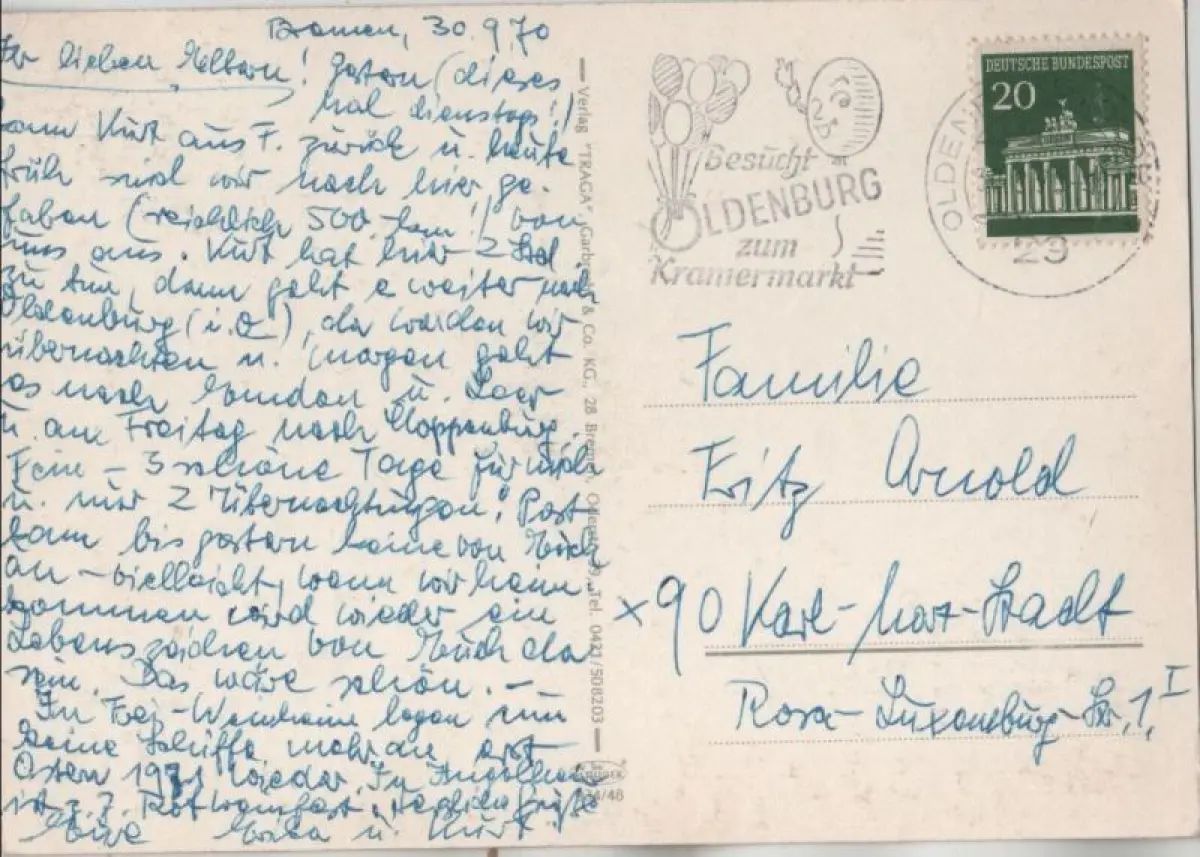 Bremen, 30.9.70
Ihr lieben Eltern! Gestern (dieses
Mal dienstags!)
kam Kurt aus F. zurück u. heute
früh sind wir nach hier ge-
fahren (reichlich 500 km!) von
uns aus. Kurt hat hier 2 Std.
zu tun, dann geht es weiter nach
Oldenburg (i. O.), da werden wir
übernachten u. morgen geht
es nach Emden u. Leer
u. am Freitag nach Cloppenburg.
Fein - 3 schöne Tage für mich
u. nur 2 Übernachtungen! Post
kam bis gestern keine von Euch
an - vielleicht, wenn wir heim-
kommen wird wieder ein
Lebenszeichen von Euch da
sein. Das wäre schön. -
In Frei-Weinheim legen nun
keine Schiffe mehr an, erst
Ostern 1971 wieder. In Ingelheim
ist z. Z. Rotweinfest. Herzliche Grüße
Eure Erika u. Kurt.
Verlag "TRAGA", & Co. KG., 28 Bremen, Tel. 0421/508203
/48
Besucht
OLDENBURG
zum
Kramermarkt
OLDENBURG
29
DEUTSCHE BUNDESPOST
20
Familie
Fritz Arnold
x 90 Karl-Marx-Stadt
Rosa-Luxemburg-Str. 1 I